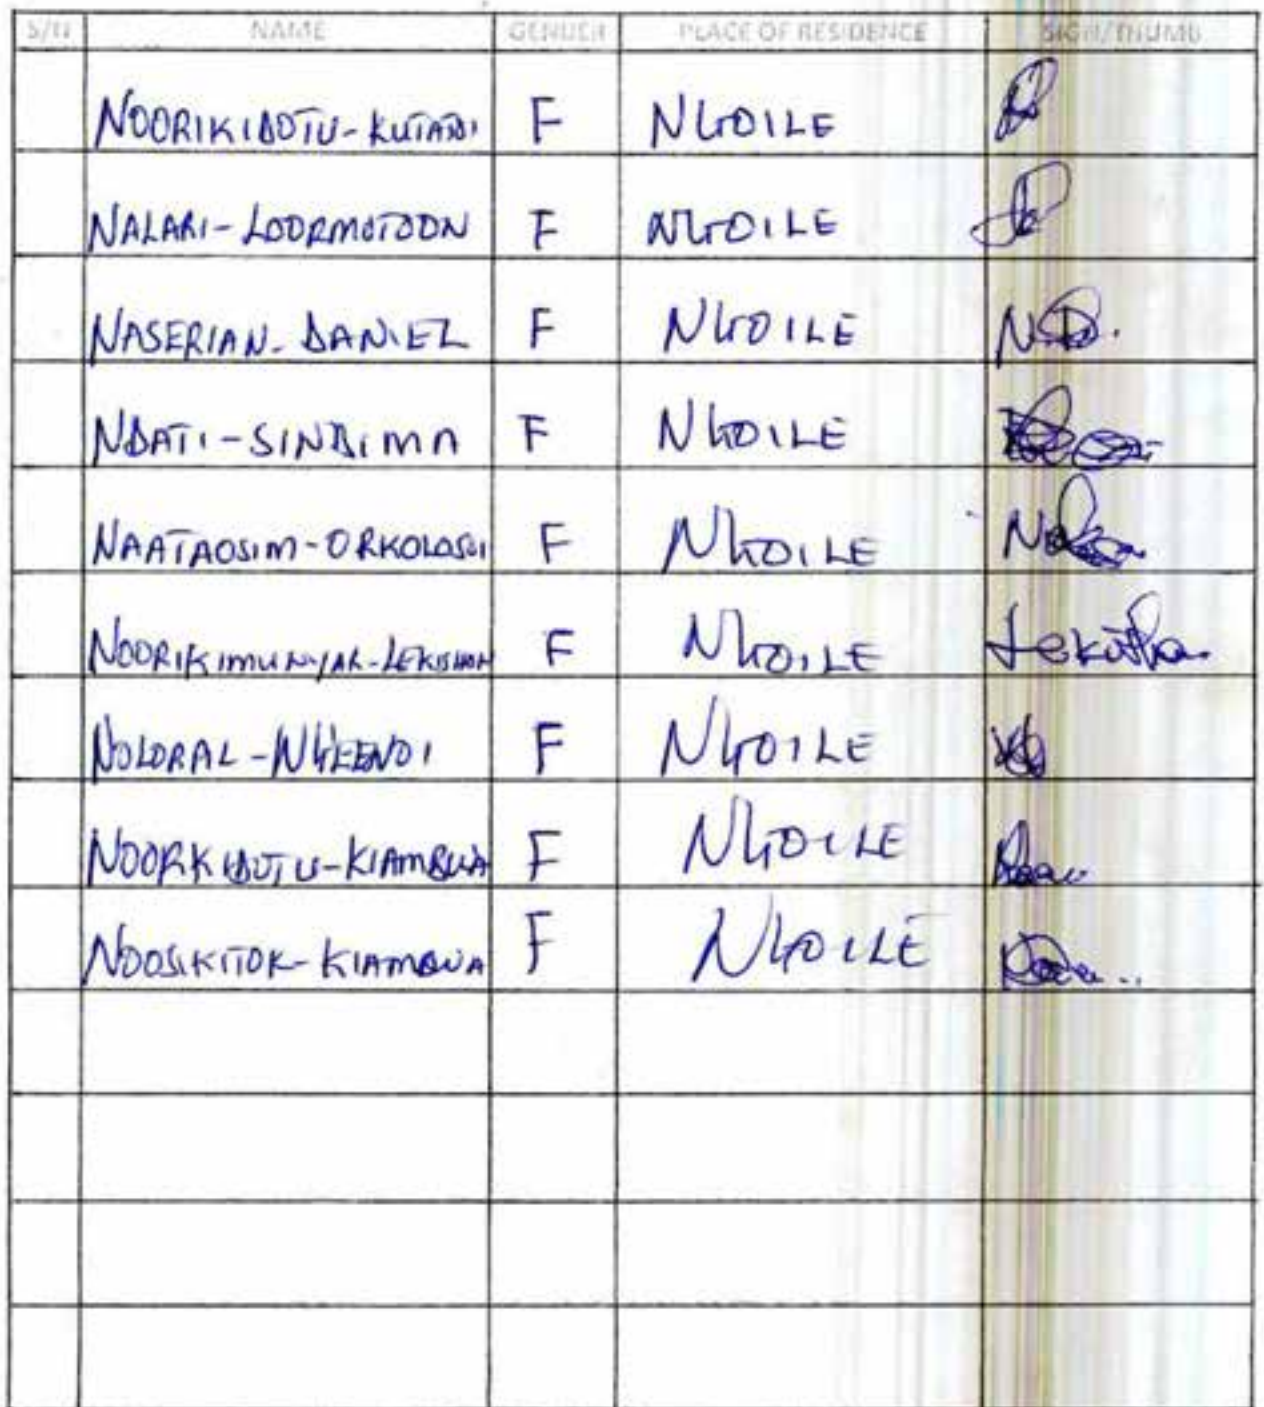 S/N NAME GENDER PLACE OF RESIDENCE SIGN/THUMB
NOORIKIDOTU-KUTADI F NKOILE
NALARI-LOORMUTOON F NKOILE
NASERIAN-DANIEL F NKOILE N.D.
NDATI-SINDIMA F NKOILE
NAATAOSIM-ORKOLOSOI F NKOILE
NOORIKIMUNYAK-LEKISHON F NKOILE
NOLORAL-NKEENOI F NKOILE
NOORKIDOTU-KIAMBUA F NKOILE
NOOSIKITOK-KIAMBUA F NKOILE